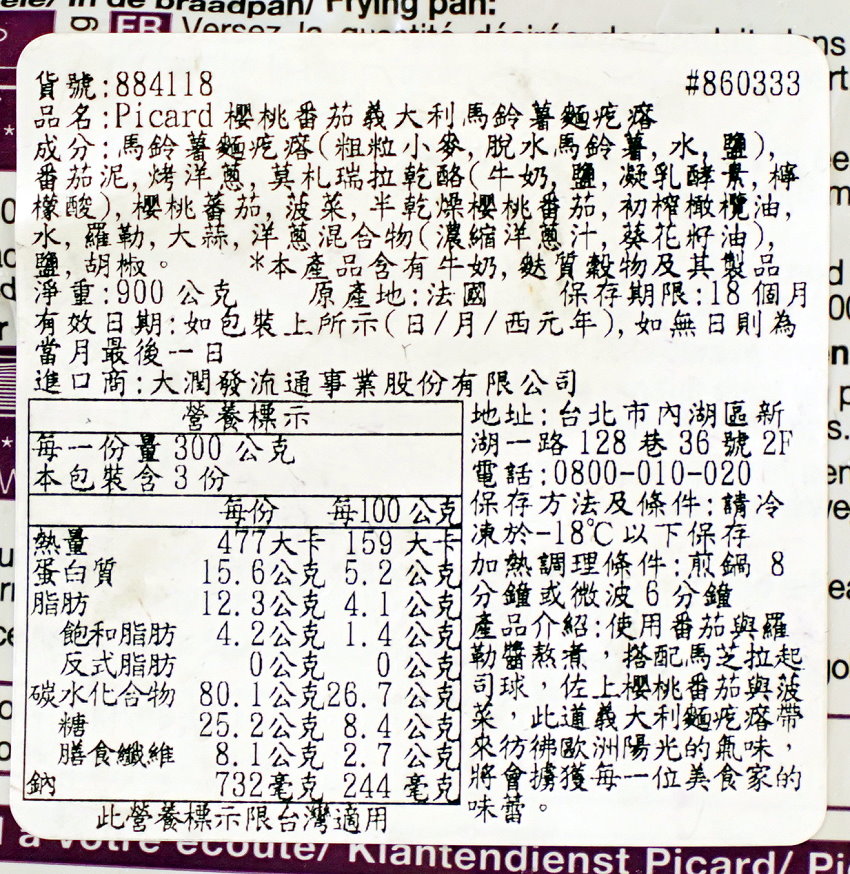 in de braadpan/ Frying pan:
FR Versez la quantité désirée de produit dans
貨號:884118 #860333
品名:Picard 櫻桃番茄義大利馬鈴薯麵疙瘩
成分:馬鈴薯麵疙瘩(粗粒小麥,脫水馬鈴薯,水,鹽),
番茄泥,烤洋蔥,莫札瑞拉乾酪(牛奶,鹽,凝乳酵素,檸
檬酸),櫻桃蕃茄,菠菜,半乾燥櫻桃番茄,初榨橄欖油,
水,羅勒,大蒜,洋蔥混合物(濃縮洋蔥汁,葵花籽油),
鹽,胡椒。 *本產品含有牛奶,麩質穀物及其製品
淨重:900 公克 原產地:法國 保存期限:18 個月
有效日期:如包裝上所示(日/月/西元年),如無日則為
當月最後一日
進口商:大潤發流通事業股份有限公司
營養標示
每一份量 300 公克
本包裝含 3 份
每份 每100 公克
熱量 477大卡 159 大卡
蛋白質 15.6公克 5.2 公克
脂肪 12.3公克 4.1 公克
飽和脂肪 4.2公克 1.4 公克
反式脂肪 0公克 0 公克
碳水化合物 80.1公克 26.7 公克
糖 25.2公克 8.4 公克
膳食纖維 8.1公克 2.7 公克
鈉 732毫克 244 毫克
此營養標示限台灣適用
地址:台北市內湖區新
湖一路 128 巷 36 號 2F
電話:0800-010-020
保存方法及條件:請冷
凍於-18℃以下保存
加熱調理條件:煎鍋 8
分鐘或微波 6 分鐘
產品介紹:使用番茄與羅
勒醬熬煮，搭配馬芝拉起
司球，佐上櫻桃番茄與菠
菜，此道義大利麵疙瘩帶
來彷彿歐洲陽光的氣味，
將會擄獲每一位美食家的
味蕾。
à votre écoute/ Klantendienst Picard/